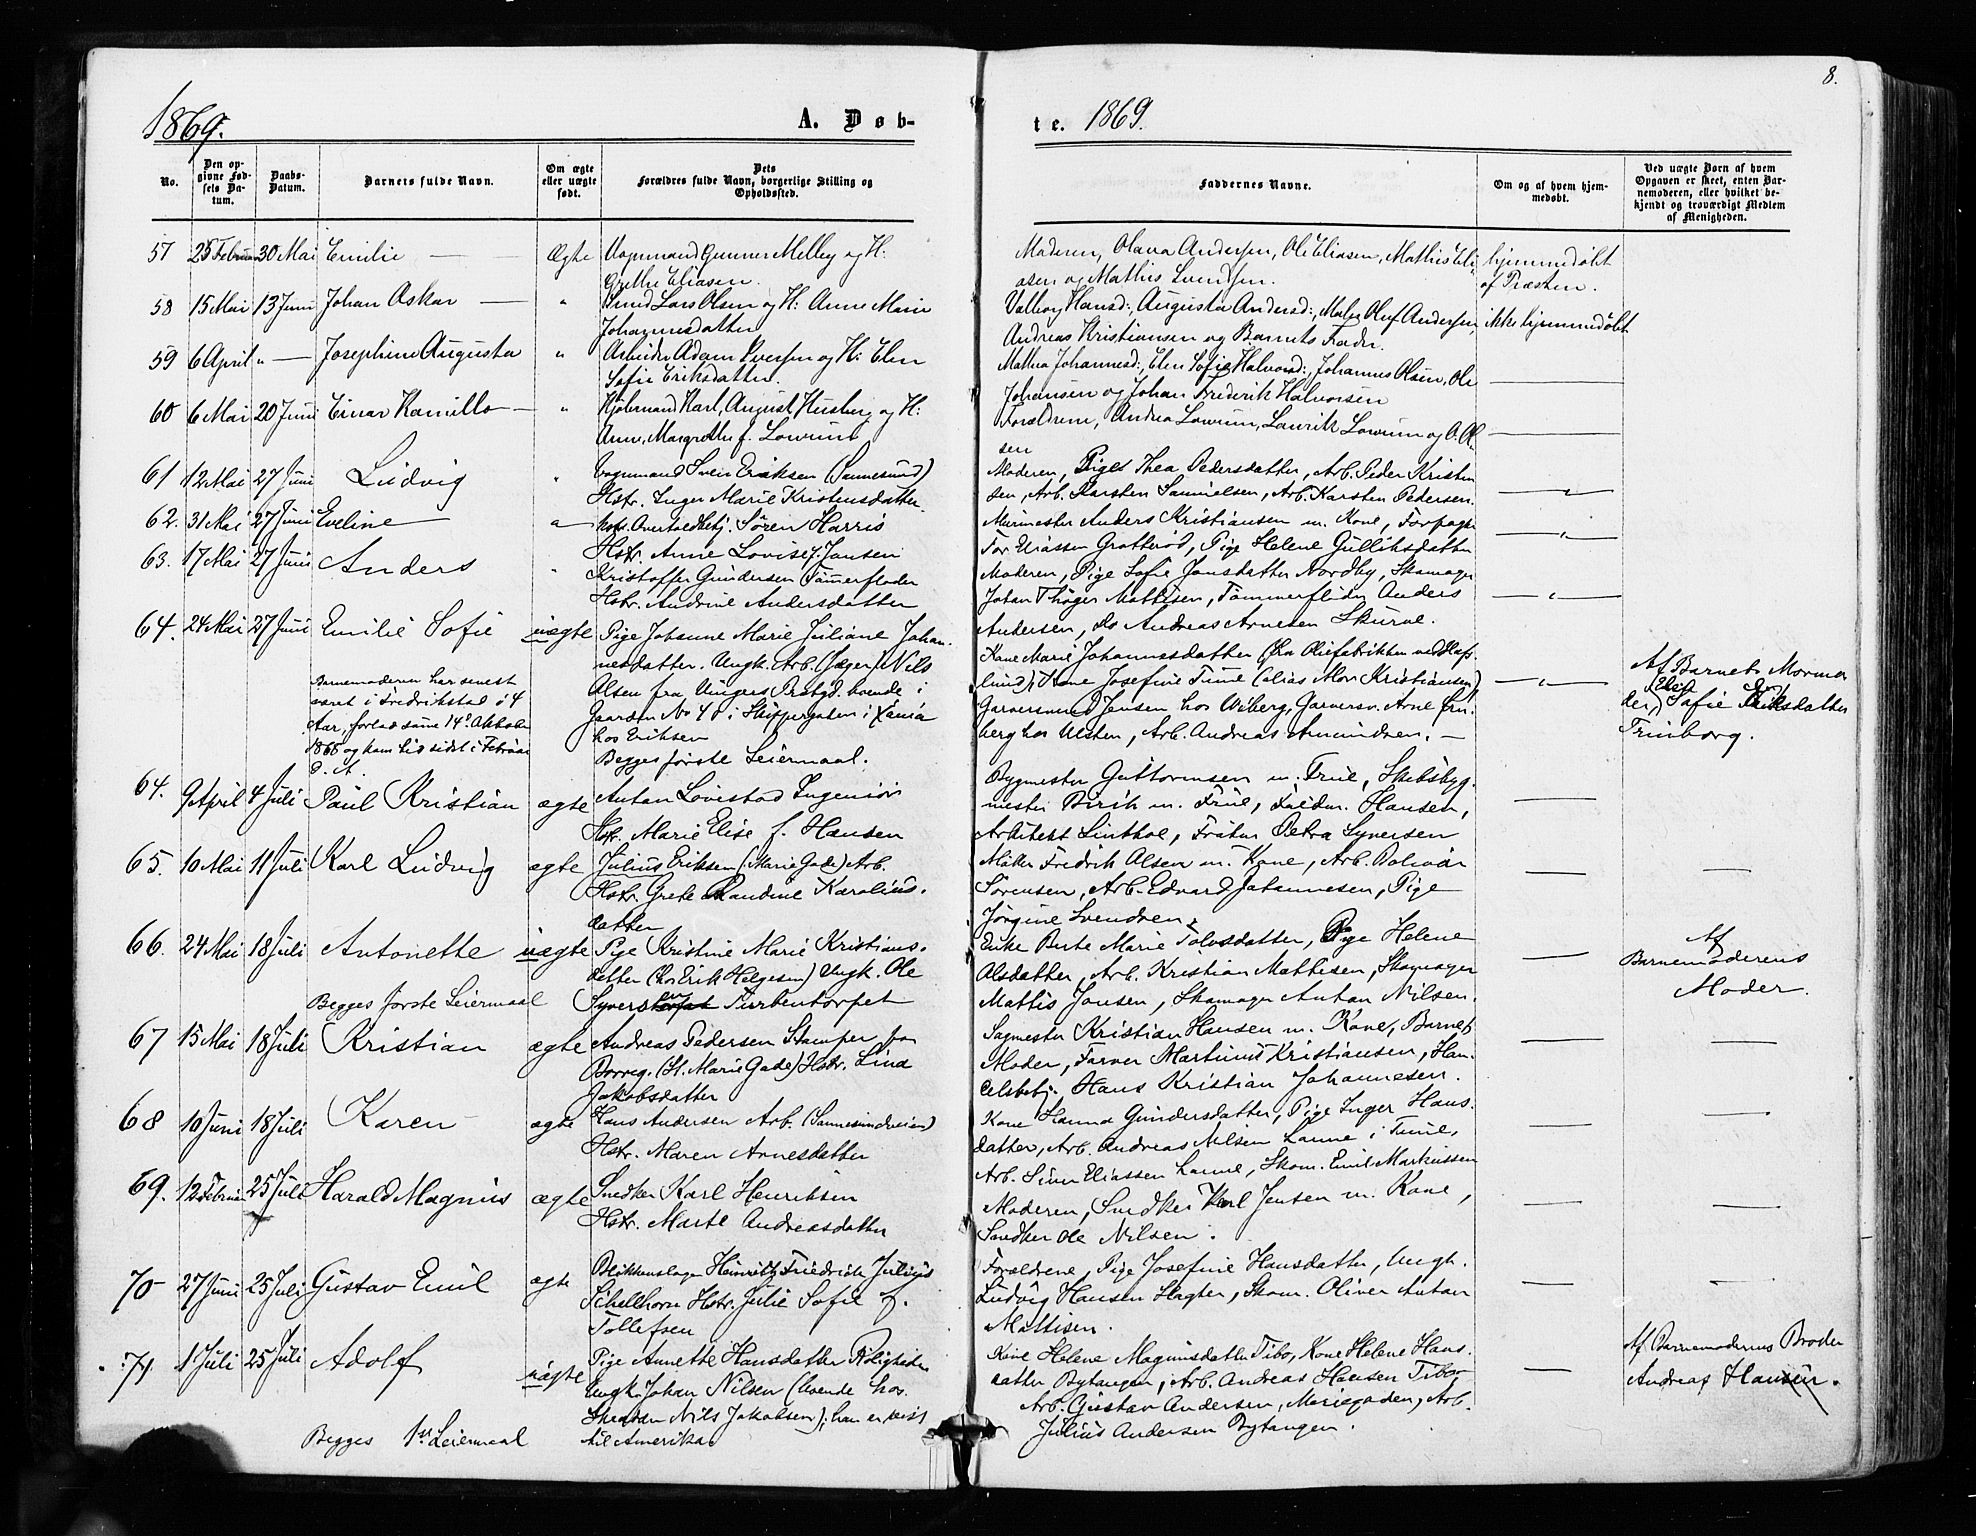 8.
1869. A. Døb-
te. 1869.
No.
Den op-
givne Fød-
sels Da-
tum.
Daabs-
Datum.
Barnets fulde Navn.
Om ægte
eller uægte
født.
Dets
Forældres fulde Navn, borgerlige Stilling og
Opholdssted.
Faddernes Navne.
Om og af hvem hjem-
medøbt.
Ved uægte Børn af hvem
Opgaven er skeet, enten Bar-
nemoderen, eller hvilket be-
kjendt og troværdigt Medlem
af Menigheden.
57 25 Februar 30 Mai Emilie — Ægte Vognmand Gunner Melleby og H:
Grethe Eliasen.
Moderen, Olava Andersen, Ole Eliasen, Mathis Eli-
asen og Mathis Svendsen.
hjemmedøbt
af Præsten.
58 15 Mai 13 Juni Johan Oskar — " Smed Lars Olsen og H: Anne Marie
Johannesdatter
Valborg Hansd:, Augusta Andersd:, Maler Oluf Andersen,
Andreas Kristiansen og Barnets Fader.
ikke hjemmedøbt
59 6 April " — Josephine Augusta " Arbeider Adam Iversen og H: Elen
Sofie Eriksdatter.
Mathea Johannesd:, Elen Sofie Halvorsd:, Johannes Olsen, Ole
Johansen og Johan Frederik Halvorsen
60 6 Mai 20 Juni Einar Kamillo — " Kjøbmand Karl August Husberg og H:
Anne Margrethe f. Lowum
Forældrene, Andrea Lowum, Laurik Lowum og O. Ol-
sen
61 12 Mai 27 Juni Ludvig " Vognmand Sven Eriksen (Sannesund)
Hstr. Inger Marie Kristensdatter
Moderen, Pige Thea Pedersdatter, Arb. Peder Kristen
sen, Arb. Karsten Samuelsen, Arb. Karsten Pedersen.
62. 31 Mai 27 Juni Eveline " Søren Harris
Hstr. Anne Lovise f. Jansen
Murmester Anders Kristiansen m. Kone,
Tor Eliassen Grotterød, Pige Helene Gulliksdatter
63. 17 Mai 27 Juni Anders " Kristoffer Gundersen Tømmerfløder
Hstr. Andrine Andersdatter
Moderen, Pige Sofie Jonsdatter Nordby, Skomager
Johan Thøger Mattisen, Tømmerfløder Anders
Andersen, do Andreas Arnesen Skurve.
64. 24 Mai 27 Juni Emilie Sofie uægte Pige Johanne Marie Juliane Johan-
nesdatter. Ungk. Arb. (Jæger) Nils
Olsen fra Ringers Præstgd. boende i
Gaarden No 40 i Skippergaten i Xania
hos Eriksen
Begges første Leiermaal.
Barnemoderen har senest
været i Fredrikstad i 4
Aar, forlod samme 14de Oktober
1865 og kom hid sidst i Februar
d. A.
Kone Marie Johannesdatter (fra Oliefabrikken ved Hafs-
lund), Kone Josefine Tune (alias Mor Kristiansen)
Garversvend Jensen hos Wiberg, Garversv. Arne Grn-
berg hos Ulsten, Arb. Andreas Amundsen. —
Af Barnets Mormo-
der, Sofie Eriksdatter
Trinborg.
64. 9 April 4 Juli Paul Kristian ægte Anton Lovestad Ingeniør
Hstr. Marie Elise f. Hansen
Bygmester Guttormsen m. Frue, Skibsbyg-
mester Birch m. Frue, Hansen,
Arkitekt Linthoe, Frøken Petra Syversen
65. 10 Mai 11 Juli Karl Ludvig ægte Julius Eriksen (Marie Gade) Arb.
Hstr. Grete Randine Karolius-
datter
Møller Fredrik Olsen m. Kone, Arb. Bolivar
Sørensen, Arb. Edvard Johannesen, Pige
Jørgine Svendsen.
66. 24 Mai 18 Juli Antonette uægte Pige Kristine Marie Kristians-
datter (hos Erik Helgesen) Ungk. Ole
Syversen Turbentorpet
Begges første Leiermaal
Enke Berte Marie Tolvsdatter, Pige Helene
Olsdatter, Arb. Kristian Mattisen, Skomager
Mattis Jonsen, Skomager Anton Nilsen.
Af
Barnemoderens
Moder.
67 15 Mai 18 Juli Kristian ægte Andreas Pedersen Stamper fra
Borreg. (St. Marie Gade) Hstr. Lina
Jakobsdatter
Sagmester Kristian Hansen m. Kone, Barnets
Moder, Farver Martinus Kristiansen, Han-
delsbetj. Hans Kristian Johannesen.
68 10 Juni 18 Juli Karen ægte Hans Andersen Arb. (Sannesundveien)
Hstr. Maren Arnesdatter
Kone Hanna Gundersdatter, Pige Inger Hans-
datter, Arb. Andreas Nilsen Lanne i Tune,
Arb. Simen Eliassen Lanne, Skom. Emil Markussen
69. 12 Februar 25 Juli Harald Magnus ægte Snedker Karl Henriksen
Hstr. Marte Andreasdatter
Moderen, Snedker Karl Jensen m. Kone,
Snedker Ole Nilsen.
70 27 Juni 25 Juli Gustav Emil ægte Blikkenslager Heinrich Friedrich Julius
Schellhorn Hstr. Julie Sofie f.
Tollefsen
Forældrene, Pige Josefine Hansdatter, Ungk.
Ludvig Hansen Slagter, Skom. Oliver Anton
Mattisen.
71. 1 Juli 25 Juli Adolf uægte Pige Annette Hansdatter Roligheden
Ungk. Johan Nilsen (boende hos
Skrædder Nils Jakobsen); han er reist
til Amerika.
Begges 1ste Leiermaal
Kone Helene Magnusdatter Tibo, Kone Helene Hans-
datter Bytangen, Arb. Andreas Hansen Tibo,
Arb. Gustav Andersen, Mariegaden, Arb.
Julius Andersen Bytangen.
Af Barnemoderens Broder
Andreas Hansen.